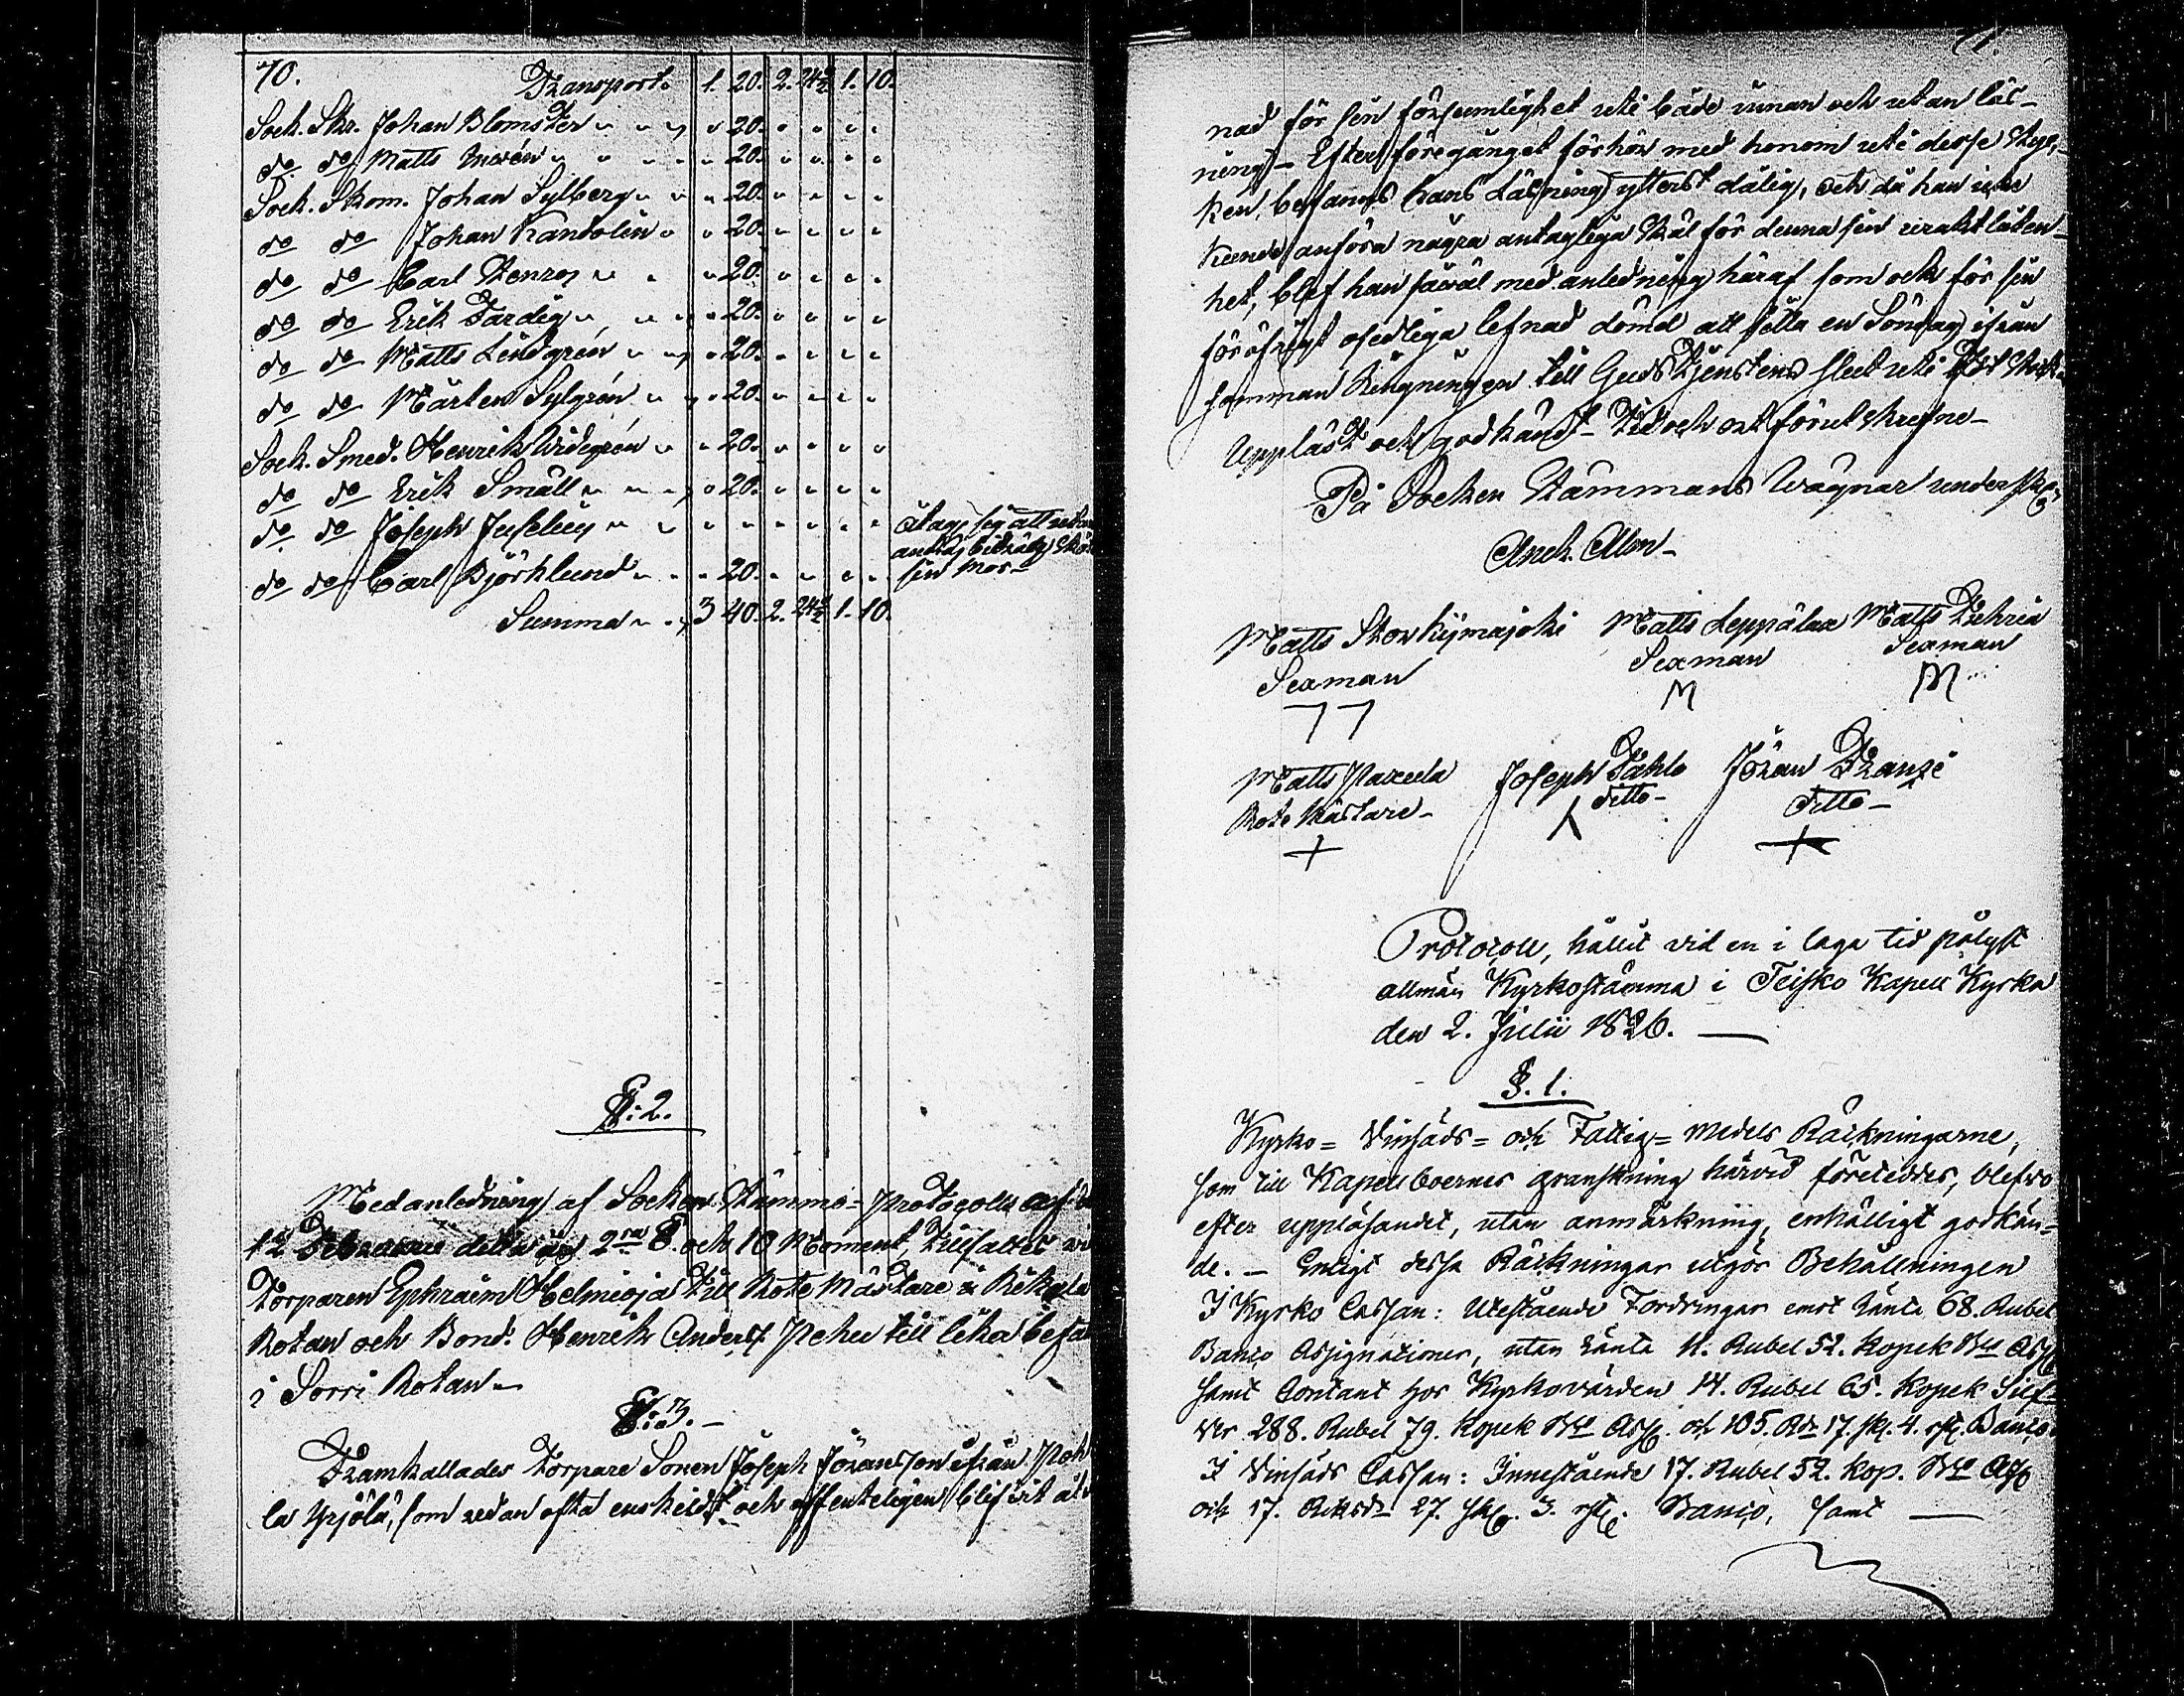 70.
Transport. 1. 20. 2. 24½ 1. 10.
Sock. Skr. Johan Blomster " " " " 20. " " " "
do do Matts " " " " 20. " " " "
Sock. Skom. Johan Sylberg " " " 20. " " " "
do do Johan Kantolin " " 20. " " " "
do do Carl Stenroj " " " 20. " " " "
do do Erik Tardig " " " 20. " " " "
do do Matts Lindgrén " " " 20. " " " "
do do Mårten Sylgrén " " " 20. " " " "
Sock. Smed. Henrik Widegrén " " 20. " " " "
do do Erik Småll " " " " 20. " " " "
do do Joseph Juselius " " " " " " " " åtagit sig att utan
do do Carl Björklund " " " 20. " " " " sin mor
Summa " " " 3 40. 2. 24½ 1. 10.
§: 2.
Med anledning af Socken Stämmo-Protocoll af d
12 Februarii detta år 2ra § och 10 Moment, tillsattes
Torparen Ephraim Helmioja till Rote Mästare i
Rotan och Bond. Henrik Anderss. Pehu till lika befa
i Sorri Rotan
§: 3.
Framkallades Torpare Sonen Joseph Jöransson ifrån Poh
la Yrjölä, som redan ofta enskildt och offenteligen blifvit åt
71.
nad för sin försumlighet uti både innan och utan läs-
ning - Efter föregånget förhör med honom uti desse styc-
ken, befanns hans Läsning ytterst dålig, och då han icke
kunde anföra några antagliga skäl för denna sin uraktlåten-
het, blef han såväl med anledning häraf som ock för sin
föröfrigt osedliga lefnad dömd att sitta en Söndag ifrån
samman Ringningen till Guds Tjenstens slut uti Fot Stock.
Uppläst och godkändt - Tid och ort förut skrefne -
På Socken Stämmans Wägnar underskr.
And. Alon -
Matts Storkymajoki Matts Leppälax Matts Tehria
Sexman Sexman Sexman
Matts Paxula Joseph Pahlo Jöran Franzi
Rote Mästare - ditto - ditto -
Protocoll, hållit vid en i laga tid pålyst
allmän Kyrkostämma i Teisko Kapell Kyrka
den 2. Julii 1826. —
§. 1.
Kyrko = Vinsäds = och Fattig = medels Räkningarne,
som till Kapellboernes granskning härvid företeddes, blefvo
efter uppläsandet, utan anmärkning, enhälligt godkän=
de. - Enligt dessa Räkningar utgör Behållningen
I Kyrko Cassan: Utestående Fordringar emot ränta 68. Rubel
Banco Assignationer, utan ränta 11. Rubel 52. Kopek Bco Ass
samt Contant hos Kyrkovärden 14. Rubel 65. Kopek Silf-
ver 288. Rubel 79. Kopek Bco Ass. och 105. Rdr 17. sk. 4. rst. Banco.
I Vinsäds Cassan: Innestående 17. Rubel 52. Kop. Bco Ass
och 17. Riksdr 27. sk. 3. rst. Banco, samt —